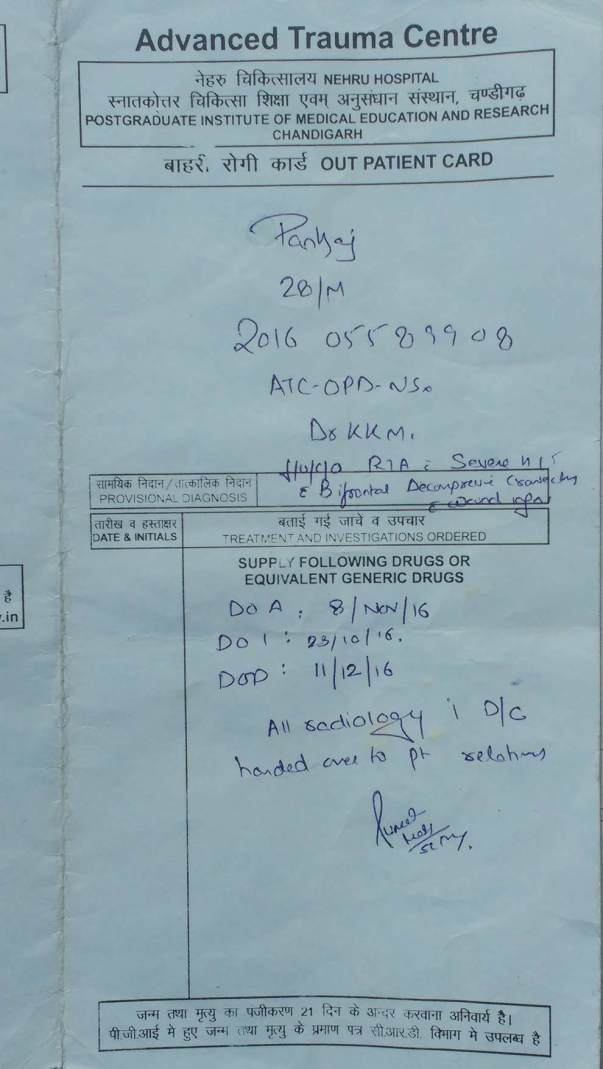 Advanced Trauma Centre
नेहरु चिकित्सालय NEHRU HOSPITAL
स्नातकोत्तर चिकित्सा शिक्षा एवम् अनुसंधान संस्थान, चण्डीगढ़
POSTGRADUATE INSTITUTE OF MEDICAL EDUCATION AND RESEARCH
CHANDIGARH
बाहरी रोगी कार्ड OUT PATIENT CARD
Pankaj
28/M
2016 05589908
ATC-OPD-NS.
Dr KKM.
RTA Severe HI
सामयिक निदान/तात्कालिक निदान
PROVISIONAL DIAGNOSIS
Bifrontal Decompressive
तारीख व हस्ताक्षर
DATE & INITIALS
बताई गई जाचे व उपचार
TREATMENT AND INVESTIGATIONS ORDERED
SUPPLY FOLLOWING DRUGS OR
EQUIVALENT GENERIC DRUGS
DOA : 8/NOV/16
DOI : 23/10/16.
DOD : 11/12/16
All radiology D/C
handed over to pt relatives
है
.in
जन्म तथा मृत्यु का पंजीकरण 21 दिन के अन्दर करवाना अनिवार्य है।
पी.जी.आई मे हुए जन्म तथा मृत्यु के प्रमाण पत्र सी.आर.डी. विभाग मे उपलब्ध है